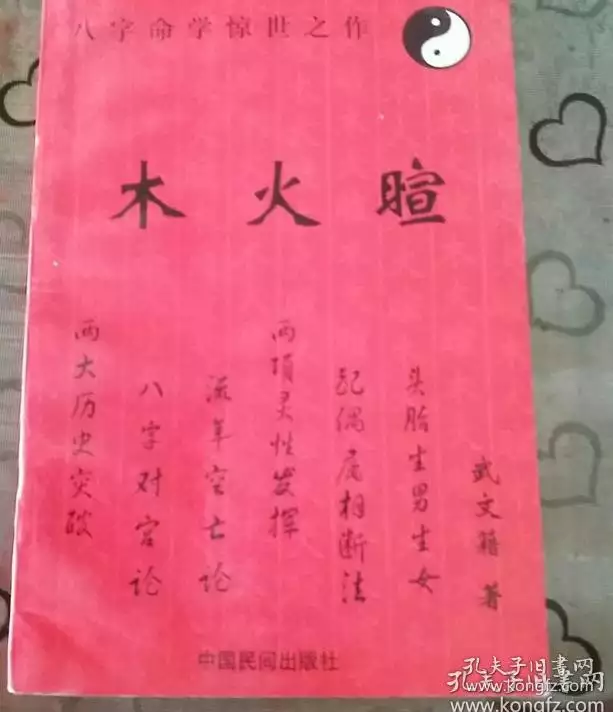 八字命学惊世之作
木火暄
两大历史突破
八字对宫论
流年空亡论
两项灵性发挥
配偶属相断法
头胎生男生女
武文籍 著
中国民间出版社
孔夫子旧书网
www.kongfz.com